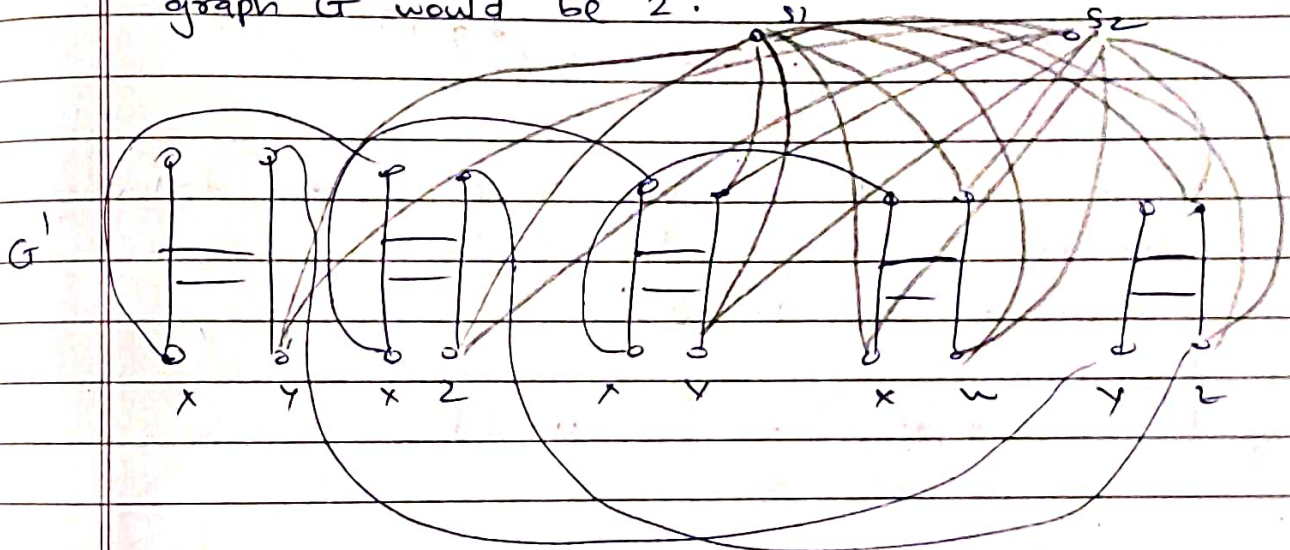 graph G would be 2.
S1 S2
G'
X Y X Z X Y X W Y Z